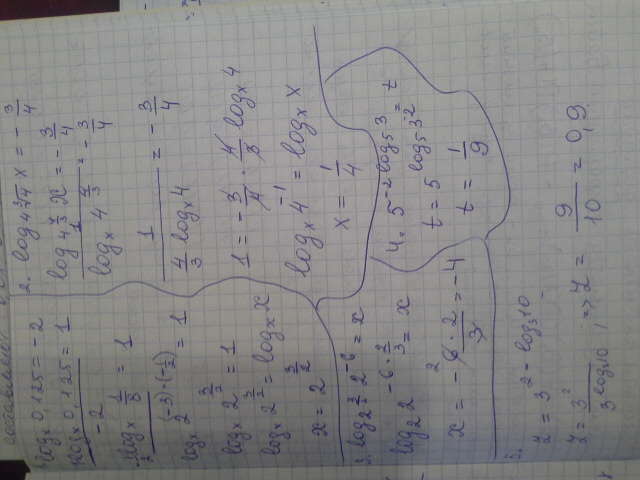 составляют
log_x 0,125 = -2
log_x 0,125 / -2 = 1
log_x 1/8 = 1
log_x 2^((-3)·(-1/2)) = 1
log_x 2^(3/2) = 1
log_x 2^(3/2) = log_x x
x = 2^(3/2)
2. log_(4∛4) x = -3/4
log_(4^(4/3)) x = -3/4
1 / log_x 4^(4/3) = -3/4
1 / (4/3 log_x 4) = -3/4
1 = -3/4 · 4/3 log_x 4
log_x 4^(-1) = log_x x
x = 1/4
3. log_(2^(3/2)) 2^(-6) = x
log_2 2^(-6·2/3) = x
x = -6·2/3 = -4
4. 5^(-2log_5 3) = t
t = 5^(log_5 3^(-2))
t = 1/9
5.
z = 3^(2-log_3 10)
z = 3^2 / 3^(log_3 10) => z = 9/10 = 0,9